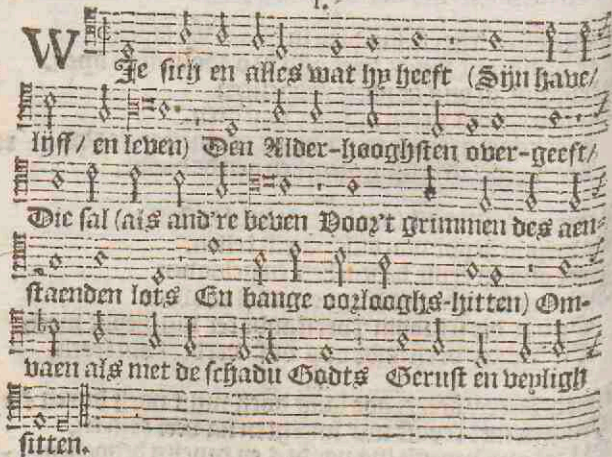 I.
WJe sich en alles wat hy heeft (Sijn have/
lijff/ en leven) Den Alder-hooghsten over-geeft/
Die sal (als and're beven Voor't grimmen des aen-
staenden lots En bange oorlooghs-hitten) Om-
vaen als met de schadu Godts Gerust èn veyligh
sitten.